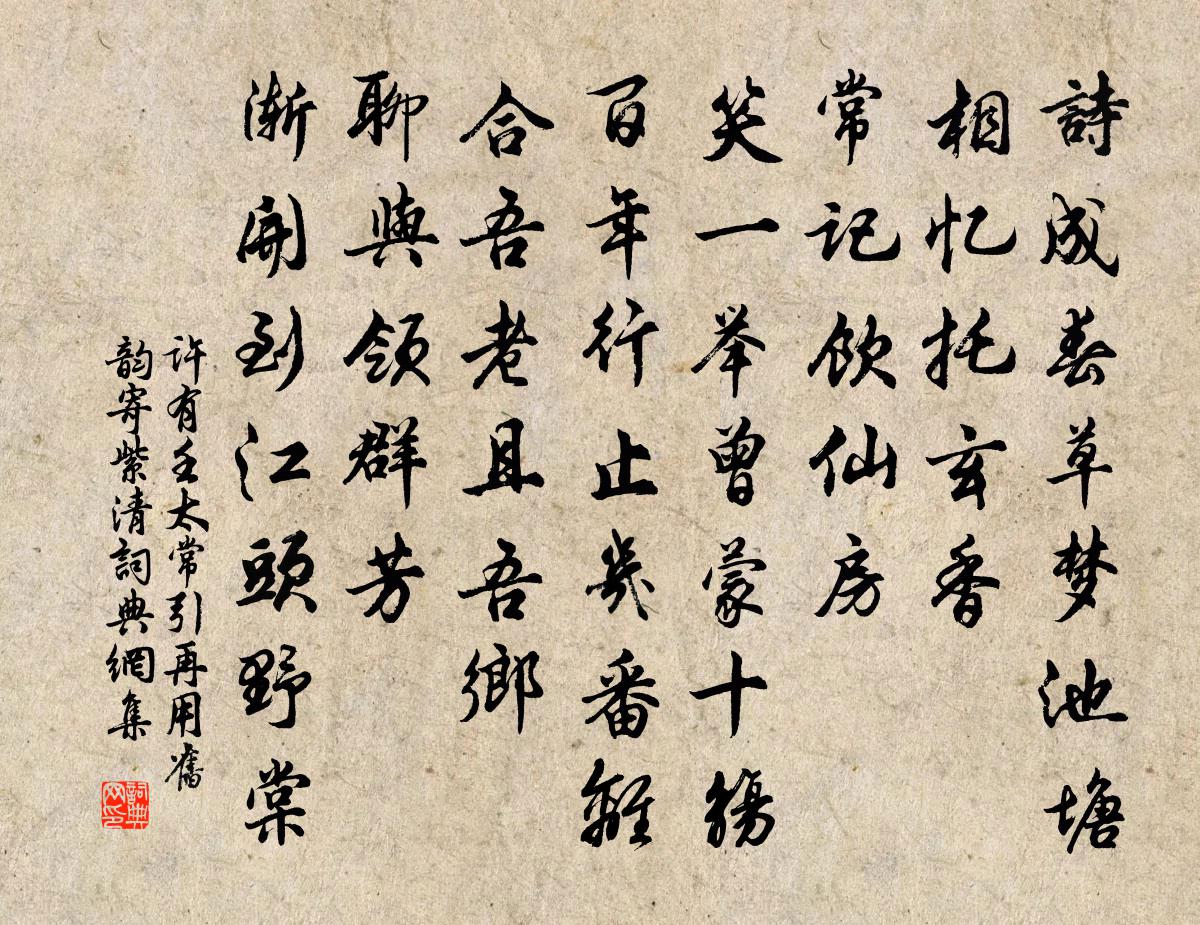 詩成春草梦池塘
相忆托玄香
常记饮仙房
笑一举曾蒙十觞
百年行止几番離
合吾老且吾鄉
聊與领群芳
渐開到江頭野棠
许有壬太常引再用舊
韵寄紫清詞典網集
詞典网印